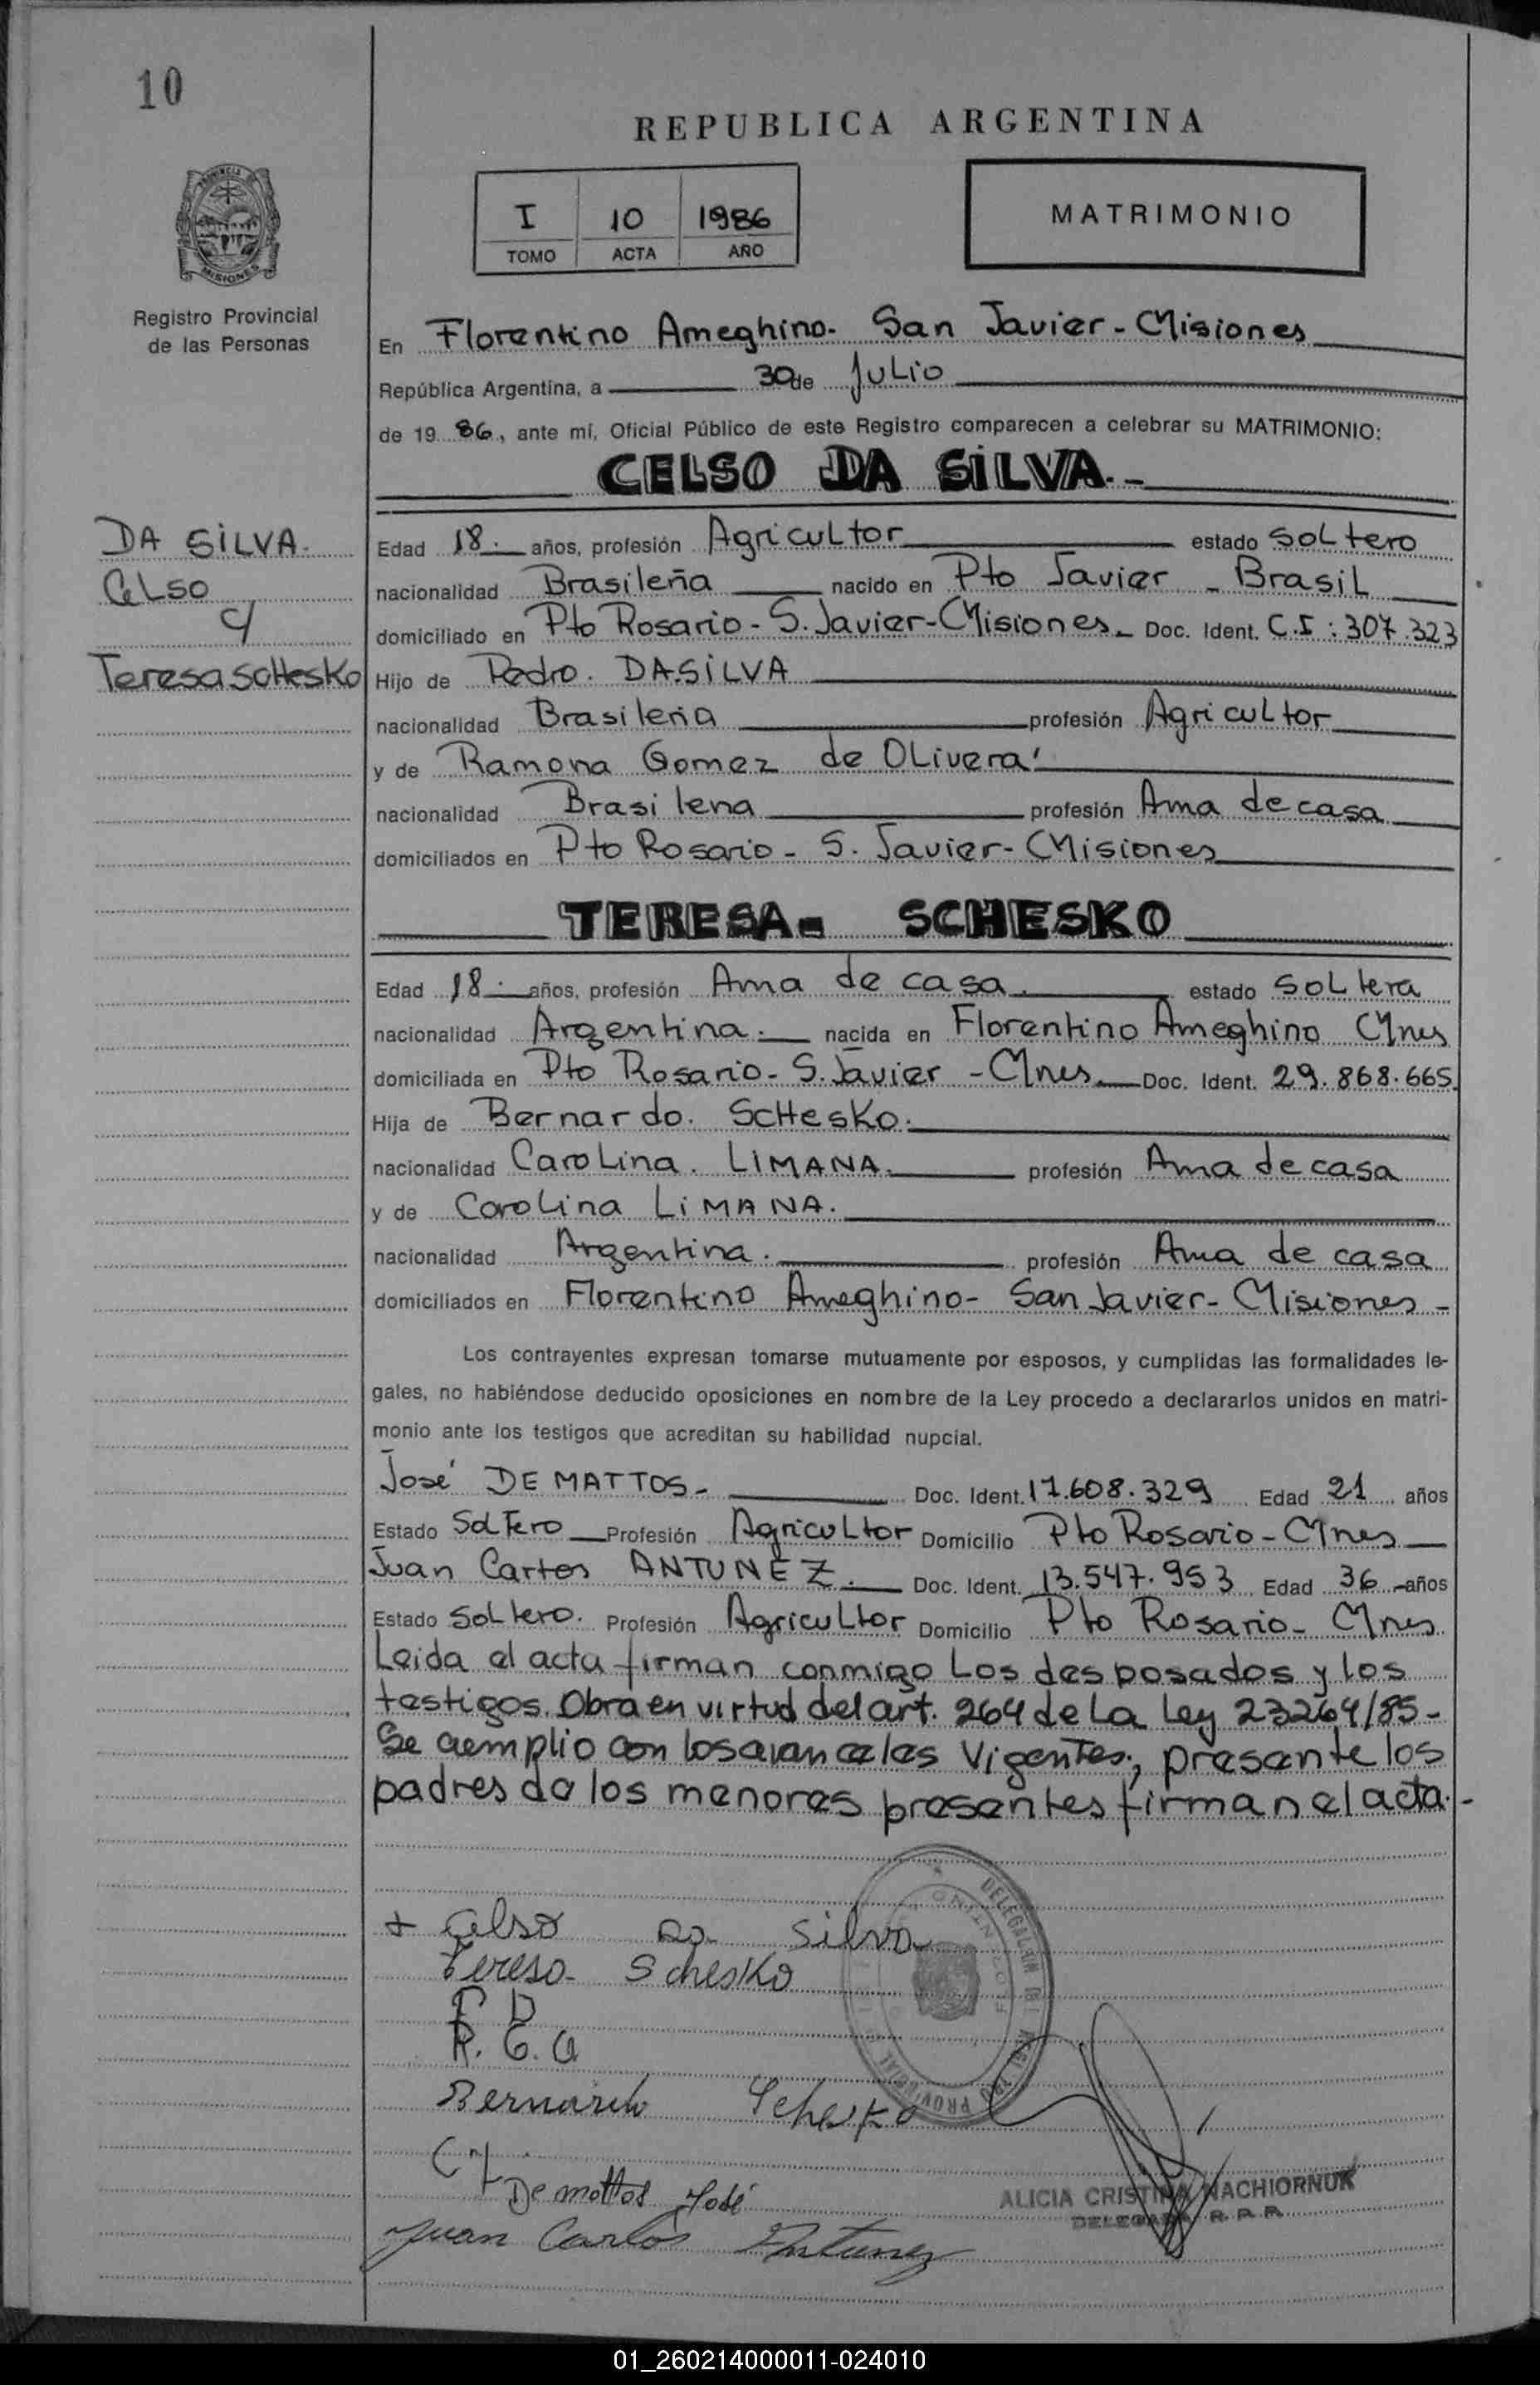 10
REPUBLICA ARGENTINA
I 10 1986
TOMO ACTA AÑO
MATRIMONIO
PROVINCIA DE
MISIONES
Registro Provincial
de las Personas
En Florentino Ameghino. San Javier - Misiones
República Argentina, a 30 de Julio
de 19 86, ante mí, Oficial Público de este Registro comparecen a celebrar su MATRIMONIO:
CELSO DA SILVA.-
DA SILVA.
CELSO
c/
Teresa SCHESKO
Edad 18. años, profesión Agricultor estado Soltero
nacionalidad Brasileña nacido en Pto Javier - Brasil
domiciliado en Pto Rosario - S. Javier - Misiones - Doc. Ident. C.I: 307.323
Hijo de Pedro. DA SILVA
nacionalidad Brasileña profesión Agricultor
y de Ramona Gomez de Olivera
nacionalidad Brasilena profesión Ama de casa
domiciliados en Pto Rosario - S. Javier - Misiones
TERESA. SCHESKO
Edad 18. años, profesión Ama de casa. estado Soltera
nacionalidad Argentina. nacida en Florentino Ameghino Mnes
domiciliada en Pto Rosario - S. Javier - Mnes. Doc. Ident. 29.868.665
Hija de Bernardo. SCHESKO.
nacionalidad Carolina. LIMANA. profesión Ama de casa
y de Carolina LIMANA.
nacionalidad Argentina. profesión Ama de casa
domiciliados en Florentino Ameghino - San Javier - Misiones -
Los contrayentes expresan tomarse mutuamente por esposos, y cumplidas las formalidades le-
gales, no habiéndose deducido oposiciones en nombre de la Ley procedo a declararlos unidos en matri-
monio ante los testigos que acreditan su habilidad nupcial.
José DE MATTOS - Doc. Ident. 17.608.329 Edad 21 años
Estado Soltero Profesión Agricultor Domicilio Pto Rosario - Mnes
Juan Carlos ANTUNEZ. Doc. Ident. 13.547.953 Edad 36 años
Estado Soltero. Profesión Agricultor Domicilio Pto Rosario - Mnes
Leida el acta firman conmigo los desposados y los
testigos. Obra en virtud del art. 264 de la Ley 23264/85 -
Se cumplio con los aranceles Vigentes, presente los
padres de los menores presentes firman el acta. -
+ Celso Da Silva
Teresa Schesko
P D
R. G. O
Bernardo Schesko
De mattos José
Juan Carlos Antunez
ALICIA CRISTINA NACHIORNUK
DELEGADA R. P. P.
01_260214000011-024010